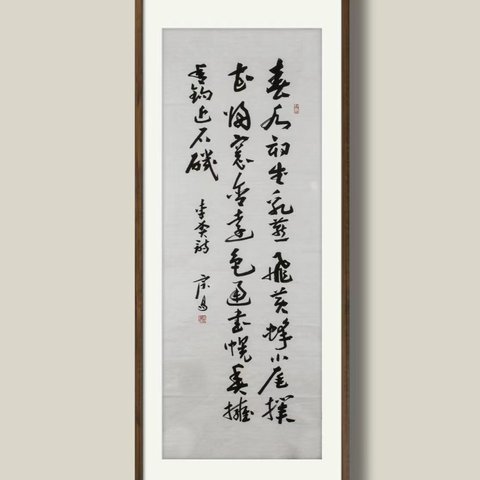 春水初生乳燕飛黄蜂小尾撲
花歸窗含遠色通書幌魚擁
香鈎近石磯
李賀詩